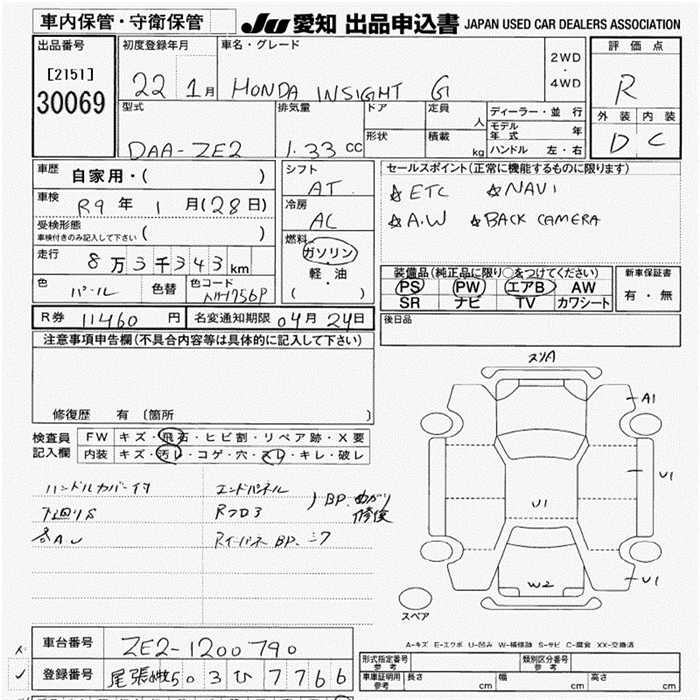 車内保管・守衛保管
JU 愛知 出品申込書 JAPAN USED CAR DEALERS ASSOCIATION
出品番号
[2151]
30069
初度登録年月
22 1月
車名・グレード
HONDA INSIGHT G
2WD・4WD
評価点
R
外装 内装
D C
型式
DAA-ZE2
排気量
1.33 cc
ドア
形状
定員 人
積載 kg
ディーラー・並行
モデル年式 年
ハンドル 左・右
車歴 自家用・( )
車検 R9年 1月(28日)
受検形態
車検付きのみ記入して下さい ( )
走行 8万3千343km
色 パール 色替 色コード NH756P
シフト
AT
冷房
AC
燃料
ガソリン
軽・油
( )
セールスポイント(正常に機能するものに限ります)
☆ETC ☆NAVI
☆A.W ☆BACK CAMERA
装備品(純正品に限り○をつけてください)
PS PW エアB AW
SR ナビ TV カワシート
新車保証書
有・無
R券 11460円 名変通知期限 04月24日
後日品
注意事項申告欄(不具合内容等は具体的に記入して下さい)
修復歴 有〔箇所 〕
検査員記入欄
FW キズ・飛石・ヒビ割・リペア跡・X要
内装 キズ・汚レ・コゲ・穴・スレ・キレ・破レ
ハンドルカバー付 エンドパネル
下回りS Rフロア
BP. 曲がり修復
各AU
スリA
A1
U1
U1
W2
U1
スペア
A-キズ E-エクボ U-凹み W-補修跡 S-サビ C-腐食 XX-交換済
車台番号 ZE2-1200790
登録番号 尾張小牧503ひ7766
形式指定番号 参考
類別区分番号 参考
車庫証明用 参考 長さ cm 幅 cm 高さ cm